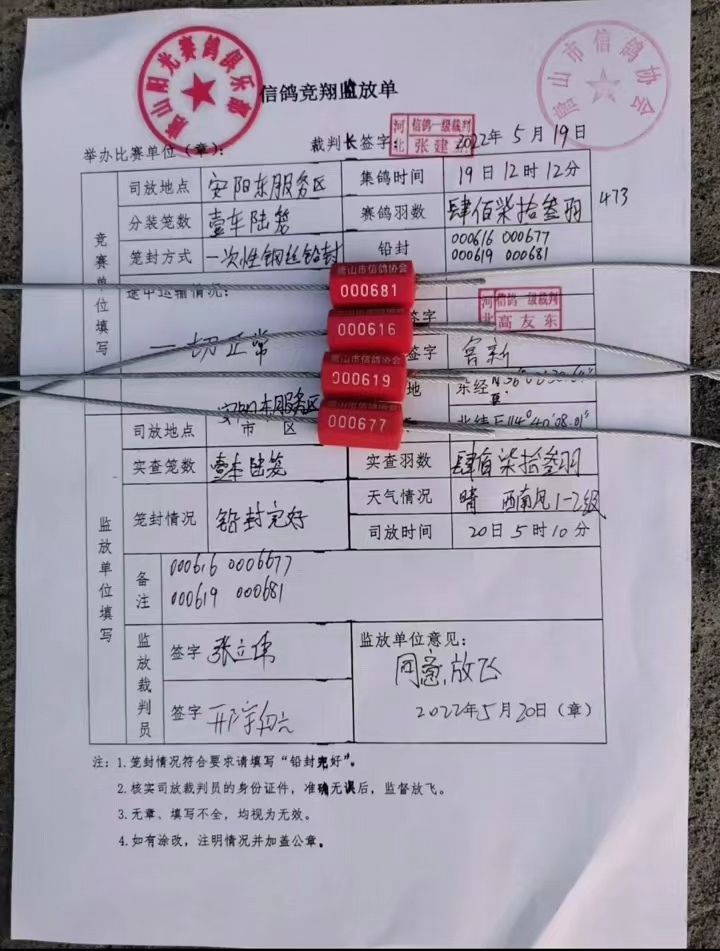 唐山阳光赛鸽俱乐部
唐山市信鸽协会
信鸽竞翔监放单
举办比赛单位（章）：
裁判长签字：
河北
信鸽一级裁判
张建
2022年5月19日
竞赛单位填写
司放地点 安阳东服务区 集鸽时间 19日12时12分
分装笼数 壹车陆笼 赛鸽羽数 肆佰柒拾叁羽 473
笼封方式 一次性钢丝铅封 铅封 000616 000677
000619 000681
途中运输情况：
一切正常
签字
河北
信鸽一级裁判
高友东
签字
地 东经
北纬E114°40′08.01″
唐山市信鸽协会
000681
000616
唐山市信鸽协会
000619
000677
监放单位填写
司放地点 市 区
安阳东服务区
实查笼数 壹车陆笼 实查羽数 肆佰柒拾叁羽
笼封情况 铅封完好 天气情况 晴 西南风1-2级
司放时间 20日5时10分
备注
000616 0006677
000619 000681
监放裁判员
签字 张立伟
签字
监放单位意见：
同意放飞
2022年5月20日（章）
注：1.笼封情况符合要求请填写“铅封完好”。
2.核实司放裁判员的身份证件，准确无误后，监督放飞。
3.无章、填写不全，均视为无效。
4.如有涂改，注明情况并加盖公章。